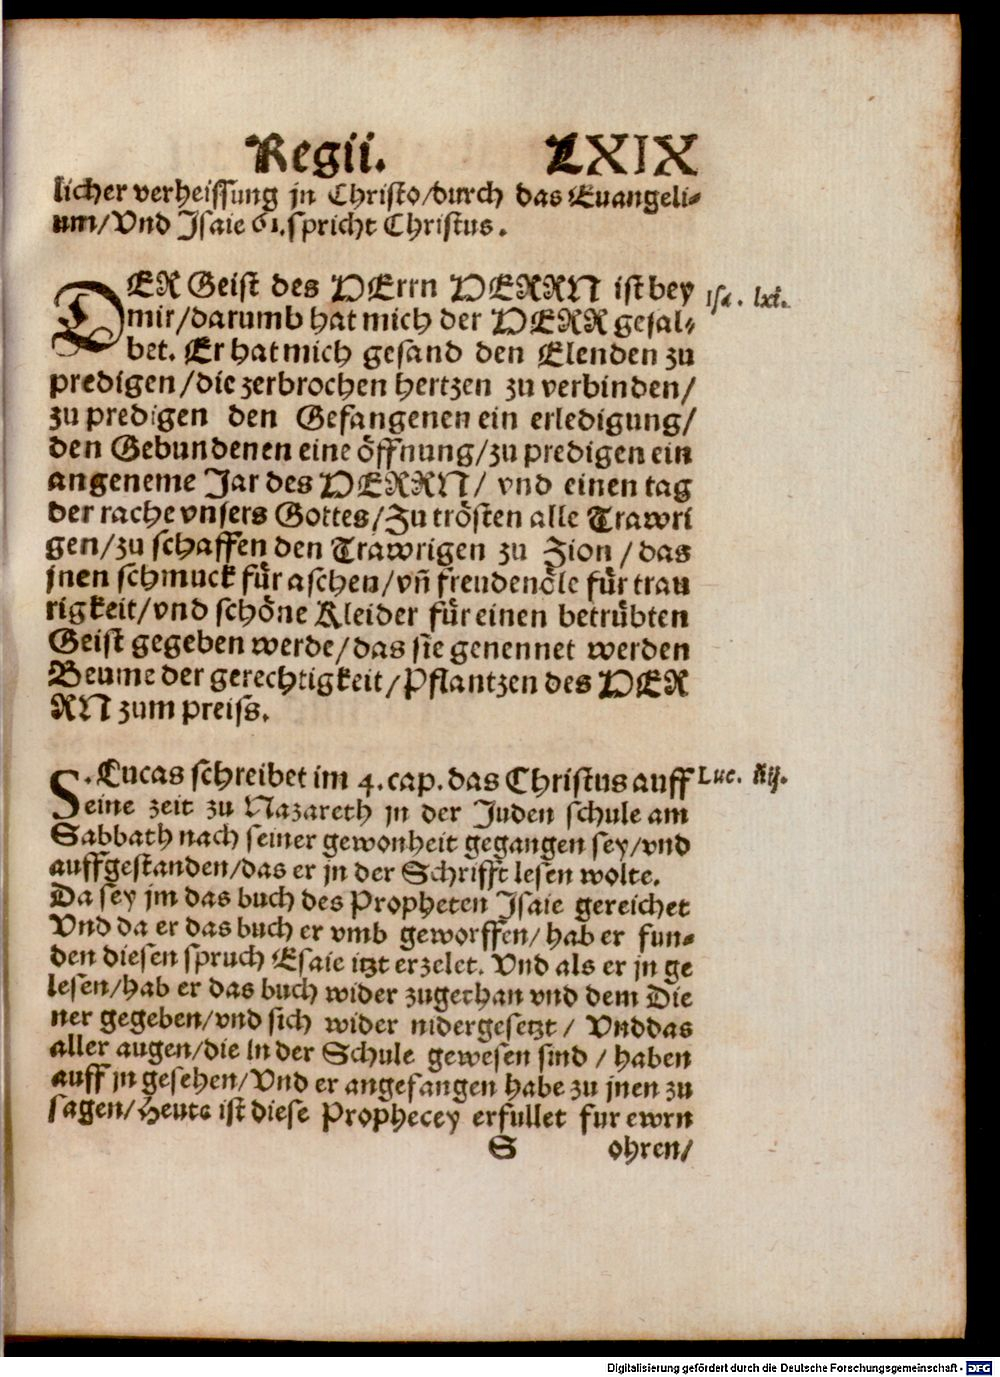 Regii. LXIX
licher verheissung jn Christo/durch das Euangeli-
um/Vnd Jsaie 61.spricht Christus.
DER Geist des HErrn HERRN ist bey
Isa. lxi.
mir/darumb hat mich der HERR gesal-
bet. Er hat mich gesand den Elenden zu
predigen/die zerbrochen hertzen zu verbinden/
zu predigen den Gefangenen ein erledigung/
den Gebundenen eine öffnung/zu predigen ein
angeneme Jar des HERRN/ vnd einen tag
der rache vnsers Gottes/Zu trösten alle Trawri
gen/zu schaffen den Trawrigen zu Zion/das
jnen schmuck für aschen/vñ freudenöle für trau
rigkeit/vnd schöne Kleider für einen betrübten
Geist gegeben werde/das sie genennet werden
Beume der gerechtigkeit/Pflantzen des HER
RN zum preiss.
S. Lucas schreibet im 4. cap. das Christus auff
Luc. iiij.
seine zeit zu Nazareth jn der Juden schule am
Sabbath nach seiner gewonheit gegangen sey/vnd
auffgestanden/das er jn der Schrifft lesen wolte.
Da sey jm das buch des Propheten Jsaie gereichet
Vnd da er das buch er vmb geworffen/hab er fun-
den diesen spruch Esaie itzt erzelet. Vnd als er jn ge
lesen/hab er das buch wider zugethan vnd dem Die
ner gegeben/vnd sich wider nidergesetzt/ Vnddas
aller augen/die in der Schule gewesen sind/haben
auff jn gesehen/Vnd er angefangen habe zu jnen zu
sagen/Heute ist diese Prophecey erfullet fur ewrn
S ohren/
Digitalisierung gefördert durch die Deutsche Forschungsgemeinschaft - DFG